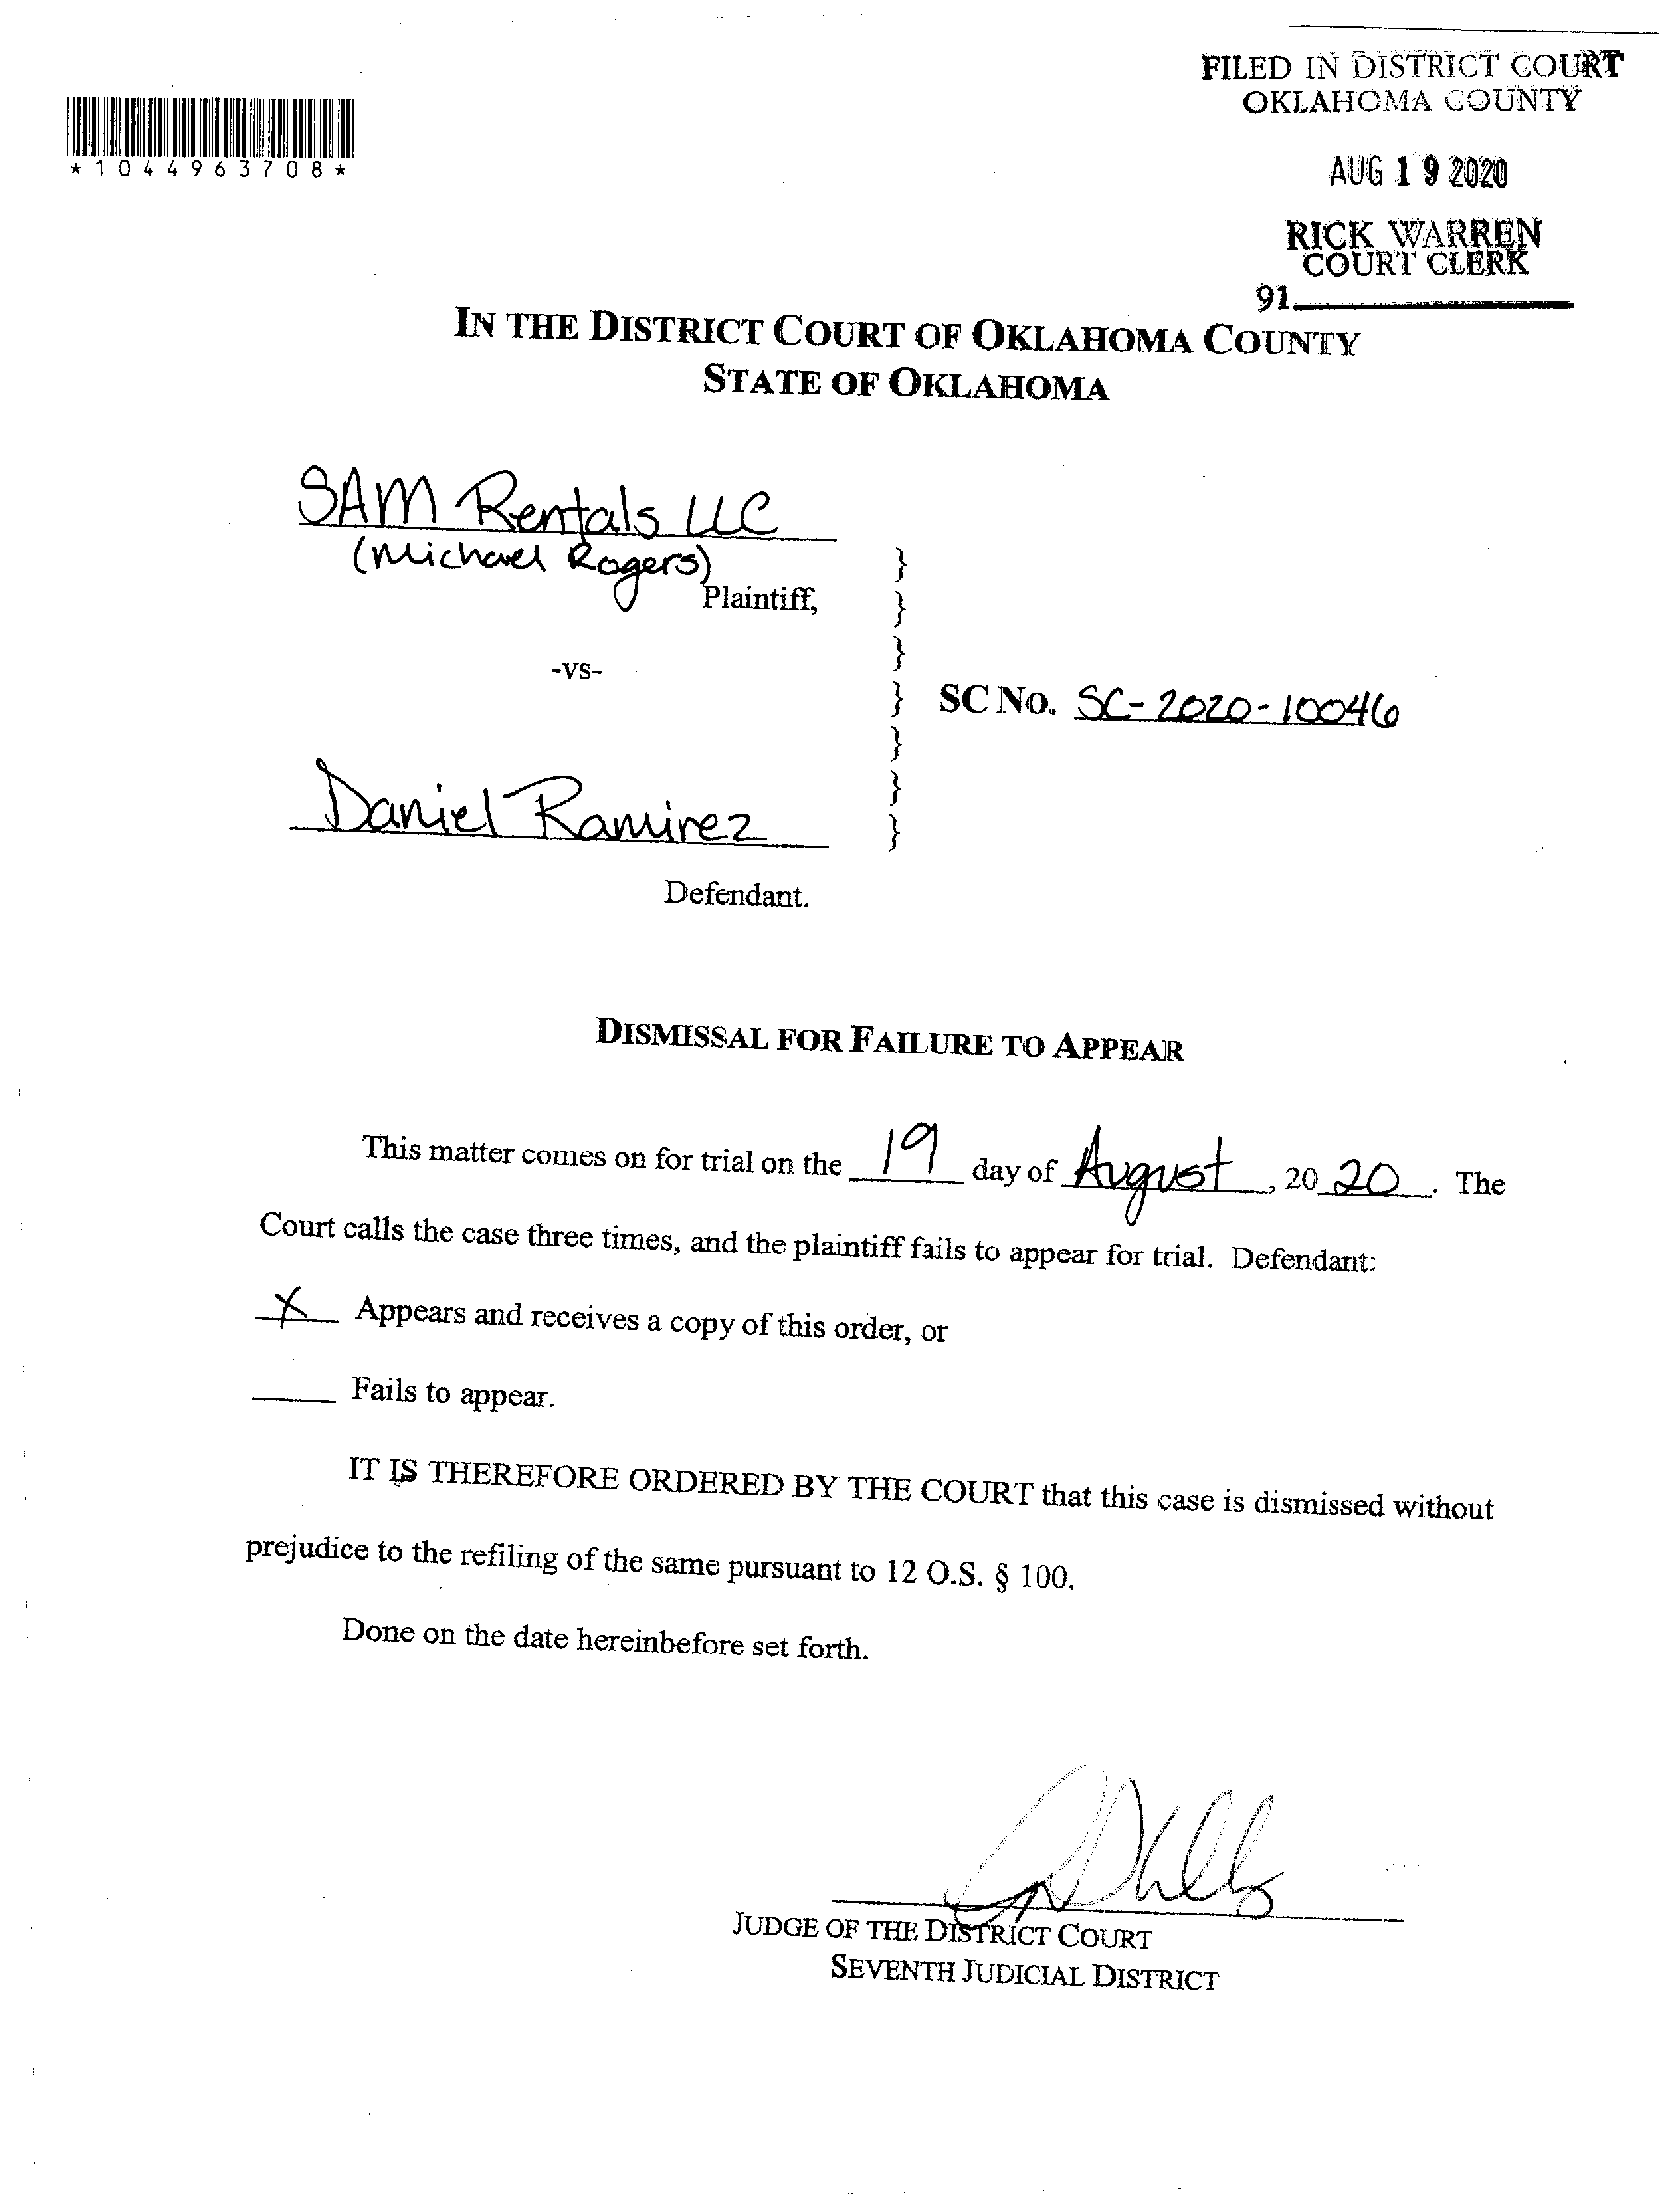 FILED IN DISTRICT COURT
OKLAHOMA COUNTY
*1044963708*
AUG 19 2020
RICK WARREN
COURT CLERK
91
IN THE DISTRICT COURT OF OKLAHOMA COUNTY
STATE OF OKLAHOMA
SAM Rentals LLC
(Michael Rogers)
Plaintiff,
-vs-
SC No. SC-2020-10046
Daniel Ramirez
Defendant.
DISMISSAL FOR FAILURE TO APPEAR
This matter comes on for trial on the 19 day of August, 2020. The
Court calls the case three times, and the plaintiff fails to appear for trial. Defendant:
X Appears and receives a copy of this order, or
Fails to appear.
IT IS THEREFORE ORDERED BY THE COURT that this case is dismissed without
prejudice to the refiling of the same pursuant to 12 O.S. § 100.
Done on the date hereinbefore set forth.
JUDGE OF THE DISTRICT COURT
SEVENTH JUDICIAL DISTRICT